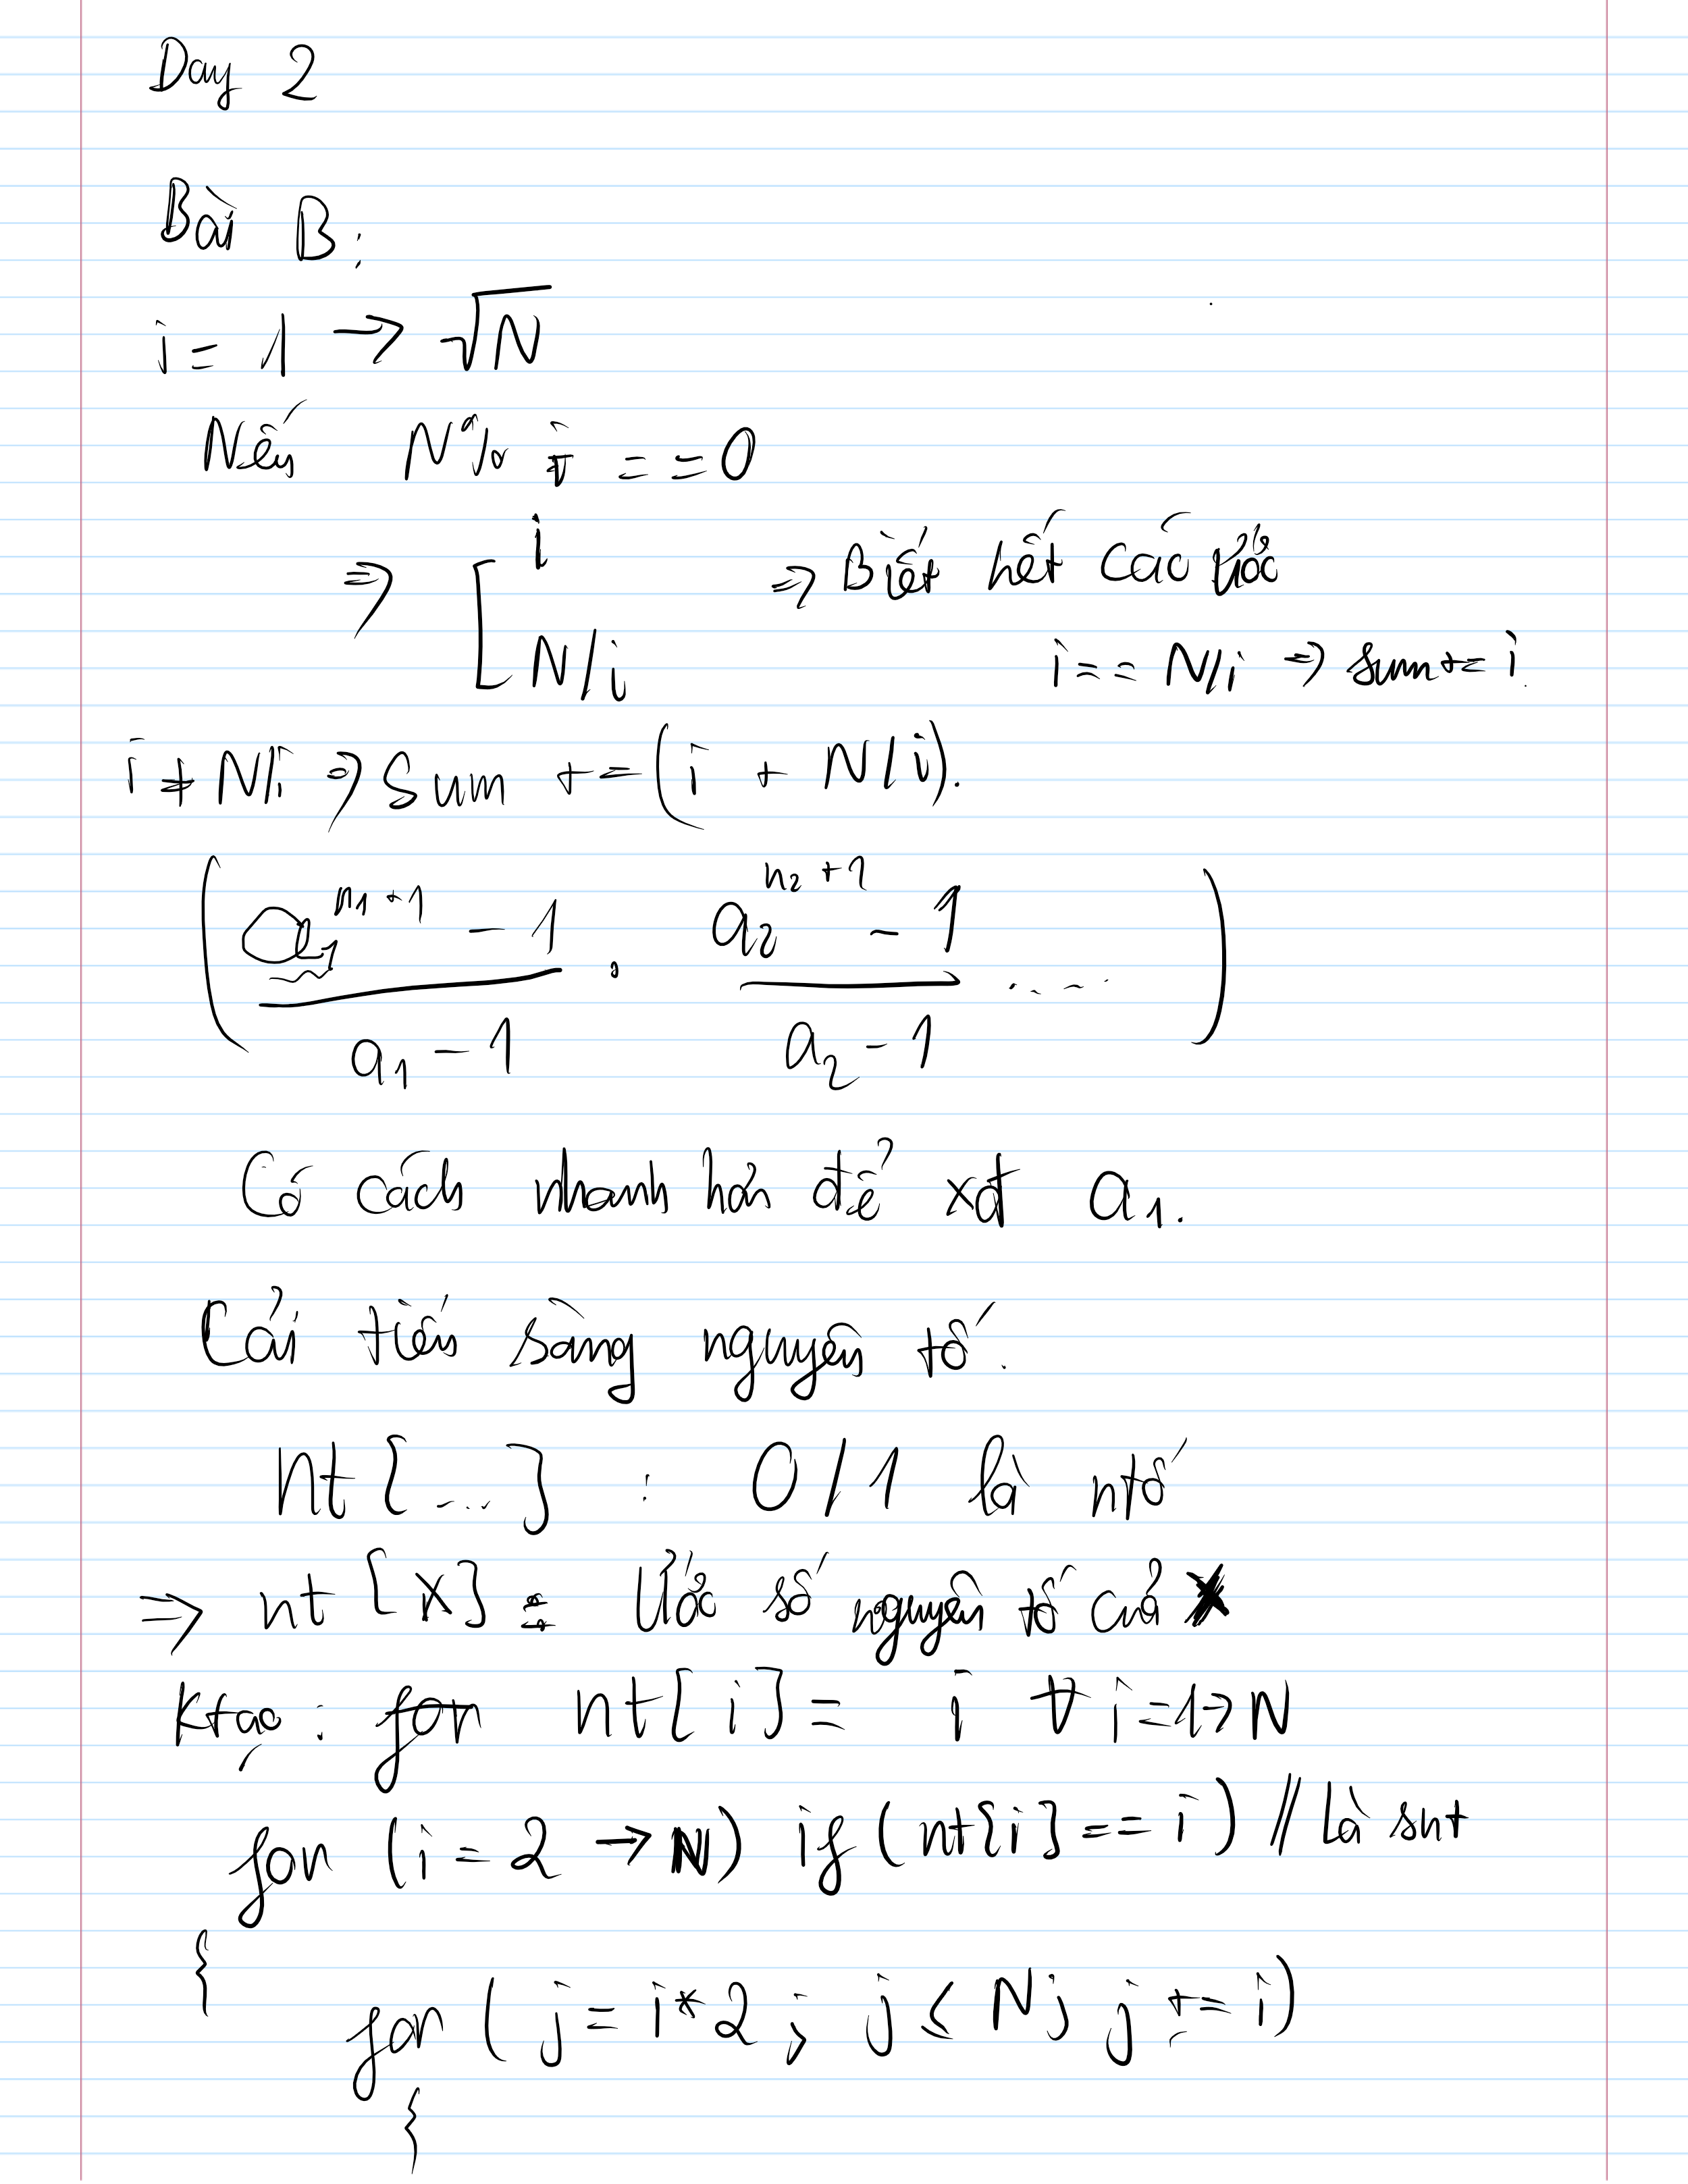 Day 2
Bài B:
i = 1 → √N
Nếu N % i == 0
⇒ [ i ⇒ Biết hết các ước
N/i i == N/i ⇒ sum += i
i ≠ N/i ⇒ Sum += (i + N/i).
( a₁^(n₁+1) - 1 . a₂^(n₂+1) - 1 ..... )
a₁ - 1 a₂ - 1
Có cách nhanh hơn để xđ a₁.
Cải tiến sàng nguyên tố.
nt[...] : 0/1 là ntố
⇒ nt[X] = Ước số nguyên tố của X
Ktạo : for nt[i] = i ∀ i=1→N
for (i = 2 → N) if (nt[i] == i) // Là snt
{
for ( j = i*2 ; j ≤ N; j += i)
{